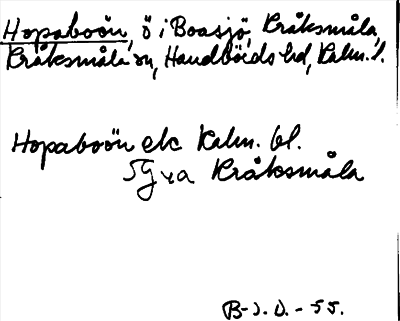 Hopaboön, ö i Boasjö, Kråksmåla,
Kråksmåla sn, Handbörds hd, Kalm. l.
Hopaboön ek Kalm. bl.
5G va Kråksmåla
B-J. D. - 55.